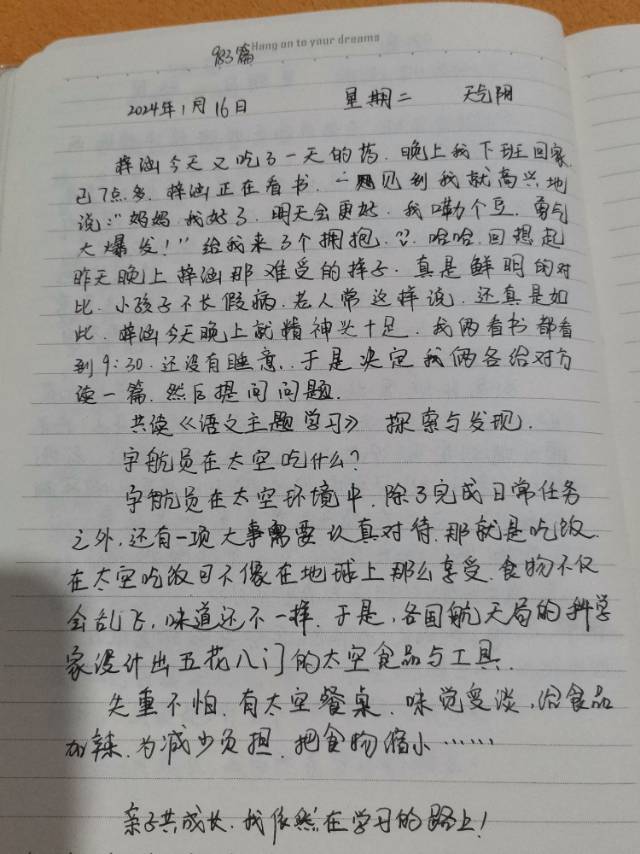 Hang on to your dreams
983篇
2024年1月16日 星期二 天气阴
梓涵今天又吃了一天的药.晚上我下班回家
已7点多.梓涵正在看书.一见到我就高兴地
说:"妈妈.我好了.明天会更好.我嘞个豆.勇气
大爆发!"给我来了个拥抱.??.哈哈.回想起
昨天晚上梓涵那难受的样子.真是鲜明的对
比.小孩子不长假病.老人常这样说.还真是如
此.梓涵今天晚上就精神头十足.我俩看书都看
到9:30.还没有睡意..于是决定我俩各给对方
读一篇.然后提问问题.
共读《语文主题学习》 探索与发现.
宇航员在太空吃什么?
宇航员在太空环境中.除了完成日常任务
之外.还有一项大事需要认真对待.那就是吃饭.
在太空吃饭可不像在地球上那么享受.食物不仅
会乱飞,味道还不一样.于是,各国航天局的科学
家设计出五花八门的太空食品与工具.
失重不怕.有太空餐桌.味觉变淡,给食品
加辣.为减少负担.把食物缩小……
亲子共成长.我依然在学习的路上!